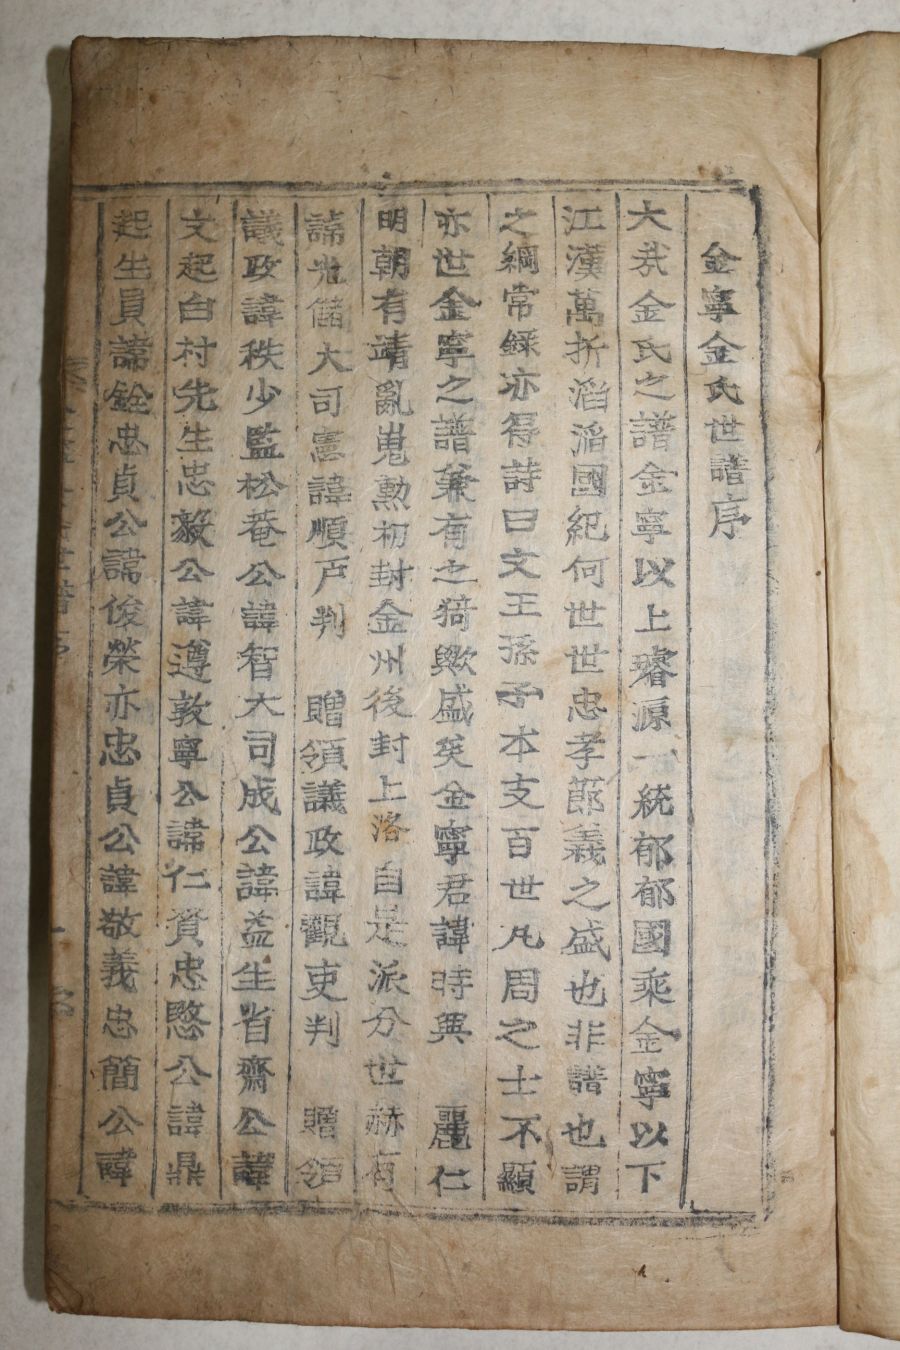 金寧金氏世譜序
大哉金氏之譜金寧以上璿源一統郁郁國乘金寧以下
江漢萬折滔滔國紀何世世忠孝節義之盛也非譜也謂
之綱常錄亦得詩曰文王孫子本支百世凡周之士不顯
亦世金寧之譜兼有之猗歟盛矣金寧君諱時興 麗仁
明朝有靖亂嵬勳初封金州後封上洛自是派分世赫有
諱光儲大司憲諱順戶判 贈領議政諱觀吏判 贈領
議政諱秩少監松菴公諱智大司成公諱益生省齋公諱
文起白村先生忠毅公諱遵敦寧公諱仁賢忠愍公諱鼎
起生員諱銓忠貞公諱俊榮亦忠貞公諱敬義忠簡公諱